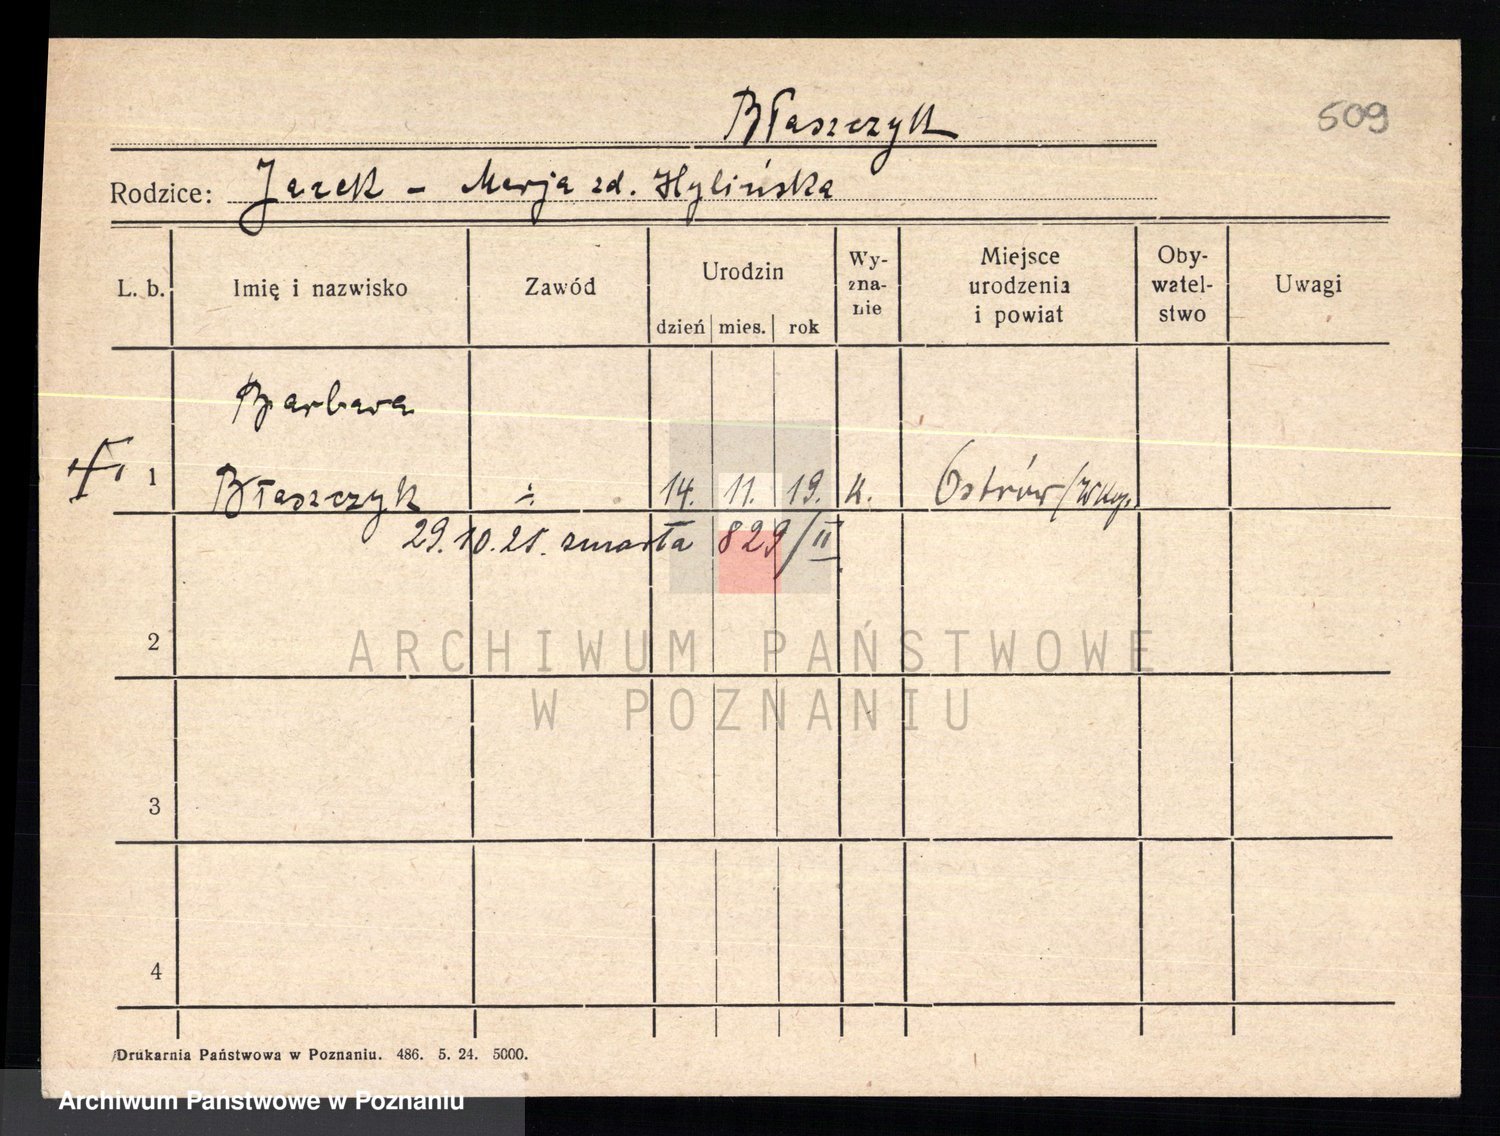 Błaszczyk
509
Rodzice: Jacek - Marja zd. Hylińska
L. b.
Imię i nazwisko
Zawód
Urodzin
dzień
mies.
rok
Wy-
zna-
nie
Miejsce
urodzenia
i powiat
Oby-
watel-
stwo
Uwagi
Barbara
1 Błaszczyk ÷ 14. 11. 19. k. Ostrów/Wlkp.
29.10.21. zmarła 829/II
2
3
4
ARCHIWUM PAŃSTWOWE
W POZNANIU
Drukarnia Państwowa w Poznaniu. 486. 5. 24. 5000.
Archiwum Państwowe w Poznaniu